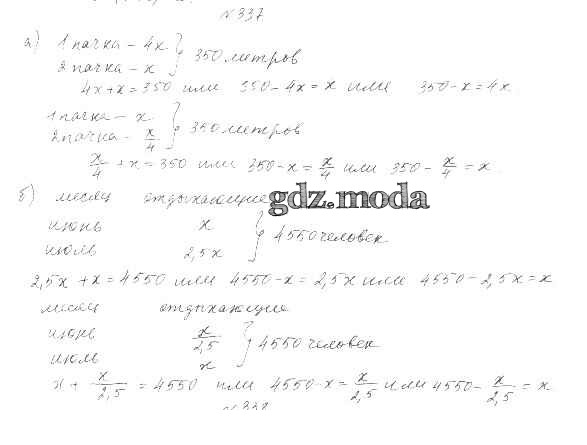 №337
а) 1 пачка - 4x } 350 метров
2 пачка - x
4x+x=350 или 350-4x=x или 350-x=4x.
1 пачка - x. } 350 метров
2 пачка - x/4
x/4 + x = 350 или 350-x = x/4 или 350 - x/4 = x.
б) месяц отдыхающие
gdz.moda
июнь x } 4550 человек
июль 2,5x
2,5x + x = 4550 или 4550-x = 2,5x или 4550-2,5x=x
месяц отдыхающие
июнь x/2,5 } 4550 человек
июль x
x + x/2,5 = 4550 или 4550-x = x/2,5 или 4550 - x/2,5 = x
№338